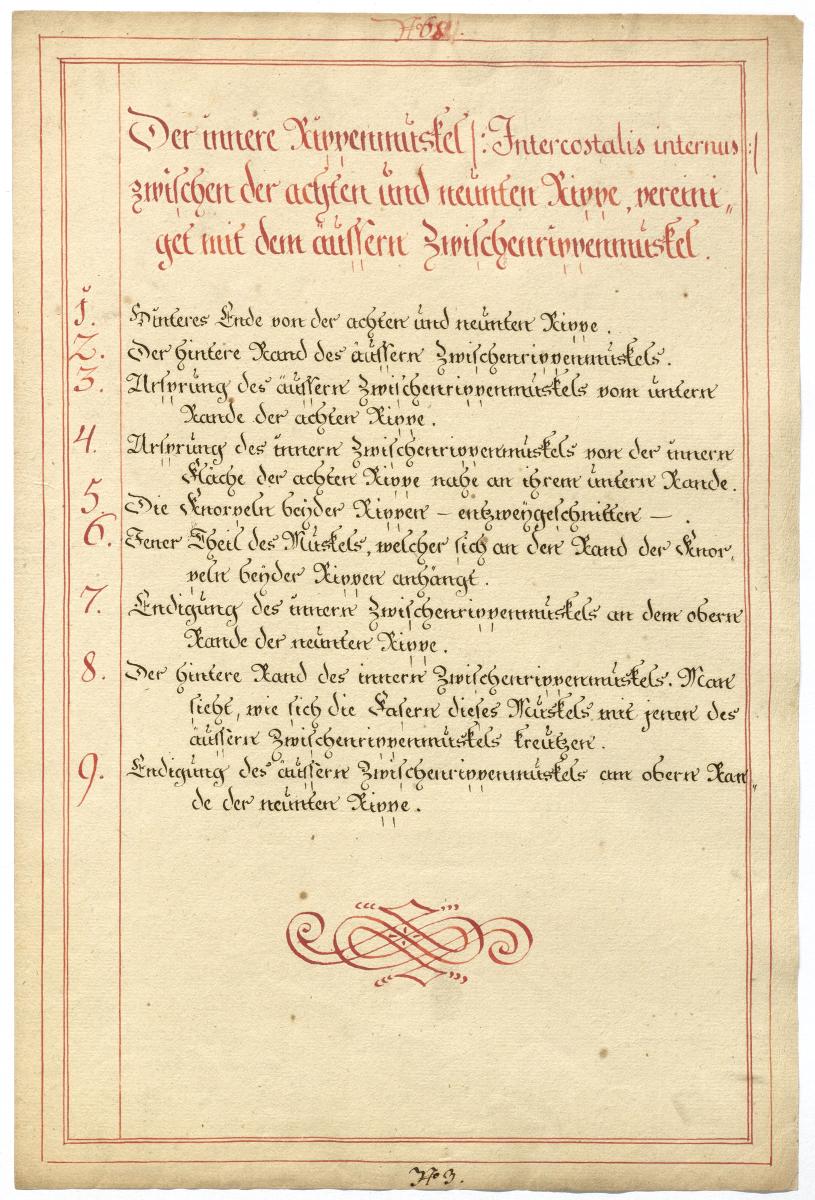 Der innere Rippenmuskel |: Intercostalis internus :|
zwischen der achten und neunten Rippe, vereini„
get mit dem äussern Zwischenrippenmuskel.
1. Hinteres Ende von der achten und neunten Rippe.
2. Der hintere Rand des äussern Zwischenrippenmuskels.
3. Ursprung des äussern Zwischenrippenmuskels vom untern
Rande der achten Rippe.
4. Ursprung des innern Zwischenrippenmuskels von der innern
Fläche der achten Rippe nahe an ihrem untern Rande.
5. Die Knorpeln beyder Rippen – entzweygeschnitten – .
6. Jener Theil des Muskels, welcher sich an den Rand der Knor„
peln beyder Rippen anhängt.
7. Endigung des innern Zwischenrippenmuskels an dem obern
Rande der neunten Rippe.
8. Der hintere Rand des innern Zwischenrippenmuskels. Man
sieht, wie sich die Fasern dieses Muskels mit jenen des
äussern Zwischenrippenmuskels kreutzen.
9. Endigung des äussern Zwischenrippenmuskels am obern Ran„
de der neunten Rippe.
No 3.